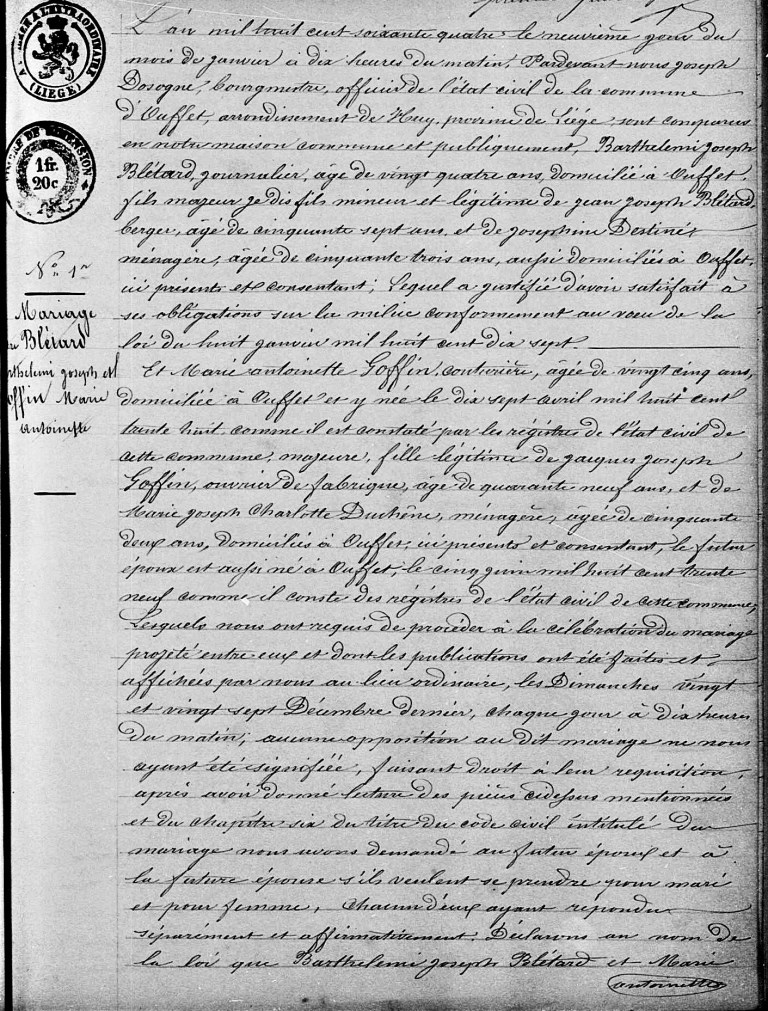 (LIEGE)
1fr.
20c
N° 1er
Mariage
Blétard
Barthelemi joseph et
Goffin Marie
antoinette
L'an mil huit cent soixante quatre le neuvième jour du
mois de janvier à dix heures du matin, Pardevant nous joseph
Dosogne, bourgmestre, officier de l'état civil de la commune
d'Ouffet, arrondissement de Huy, province de Liége sont comparus
en notre maison commune et publiquement, Barthelemi joseph
Blétard, journalier, âgé de vingt quatre ans, domicilié à Ouffet,
fils majeur je dis fils mineur et légitime de jean joseph Blétard,
berger, âgé de cinquante sept ans, et de josephine Destiné,
ménagère, âgée de cinquante trois ans, aussi domiciliés à Ouffet,
ici présents et consentant; lequel a justifié d'avoir satisfait à
ses obligations sur la milice conformement au vœu de la
loi du huit janvier mil huit cent dix sept
Et Marie antoinette Goffin, couturière, âgée de vingt cinq ans,
domiciliée à Ouffet et y née le dix sept avril mil huit cent
trente huit, comme il est constaté par les régistres de l'état civil de
cette commune, majeure, fille légitime de jacques joseph
Goffin, ouvrier de fabrique, âgé de quarante neuf ans, et de
Marie joseph Charlotte Duchêne, ménagère, âgée de cinquante
deux ans, domiciliés à Ouffet, ici présents et consentant, le futur
époux est aussi né à Ouffet, le cinq juin mil huit cent trente
neuf comme il conste des régistres de l'état civil de cette commune;
Lesquels nous ont requis de procéder à la célébration du mariage
projeté entre eux et dont les publications ont été faites et
affichées par nous au lieu ordinaire, les Dimanches vingt
et vingt sept Décembre dernier, chaque jour à dix heures
du matin; aucune opposition au dit mariage ne nous
ayant été signifiée, faisant droit à leur requisition,
après avoir donné lecture des pièces cidessus mentionnées
et du chapitre six du titre du code civil intitulé du
mariage nous avons demandé au futur époux et à
la future épouse s'ils veulent se prendre pour mari
et pour femme, chacun d'eux ayant répondu
séparément et affirmativement; Déclarons au nom de
la loi que Barthelemi joseph Blétard et Marie
antoinette